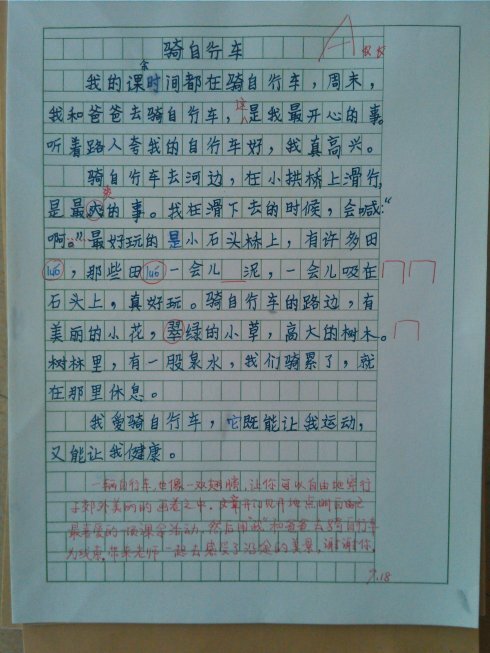 骑自行车
A
我的课余时间都在骑自行车，周末，
我和爸爸去骑自行车，这是我最开心的事。
听着路人夸我的自行车好，我真高兴。
骑自行车去河边，在小拱桥上滑行，
是最爽的事。我在滑下去的时候，会喊：“
啊。”最好玩的是小石头桥上，有许多田
luó，那些田luó一会儿 泥，一会儿吸在
石头上，真好玩。骑自行车的路边，有
美丽的小花，翠绿的小草，高大的树木。
树林里，有一股泉水，我们骑累了，就
在那里休息。
我爱骑自行车，它既能让我运动，
又能让我健康。
一辆自行车，也像一双翅膀，让你可以自由地穿行
于郊外美丽的画卷之中。文章开门见月地点明自己
最喜爱的一项课余活动，然后用和爸爸去骑自行车
为线索，带来老师一起去感受了沿途的美景，谢谢你。
9.18